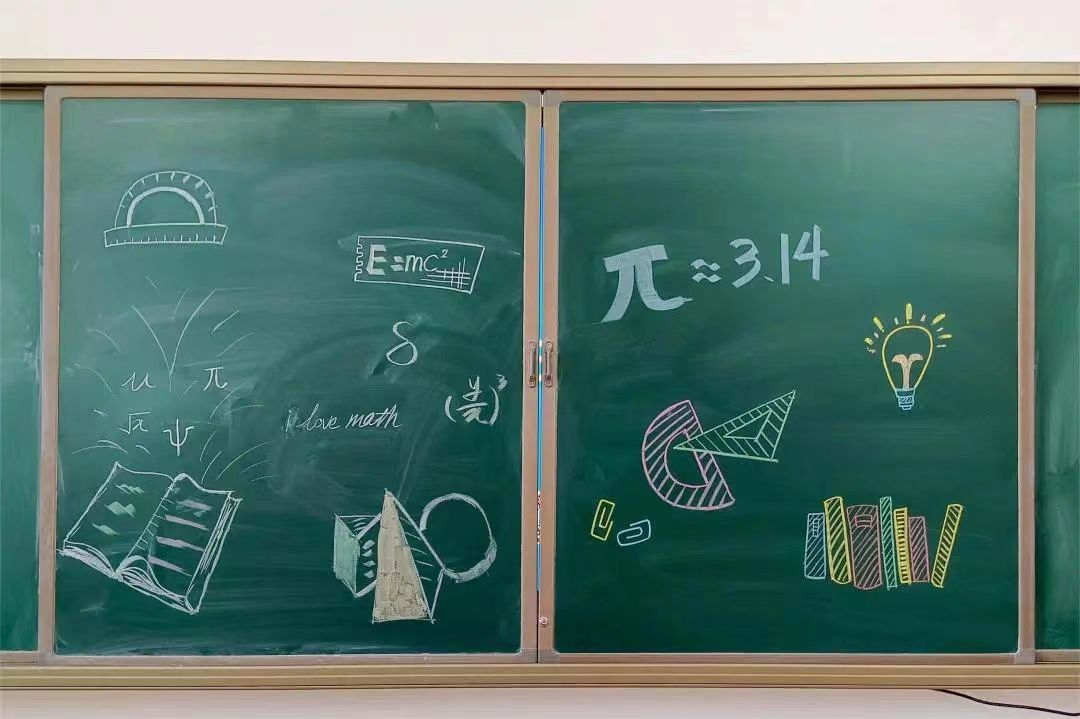 E=mc²
δ
μ π
√x ψ
I love math
π≈3.14